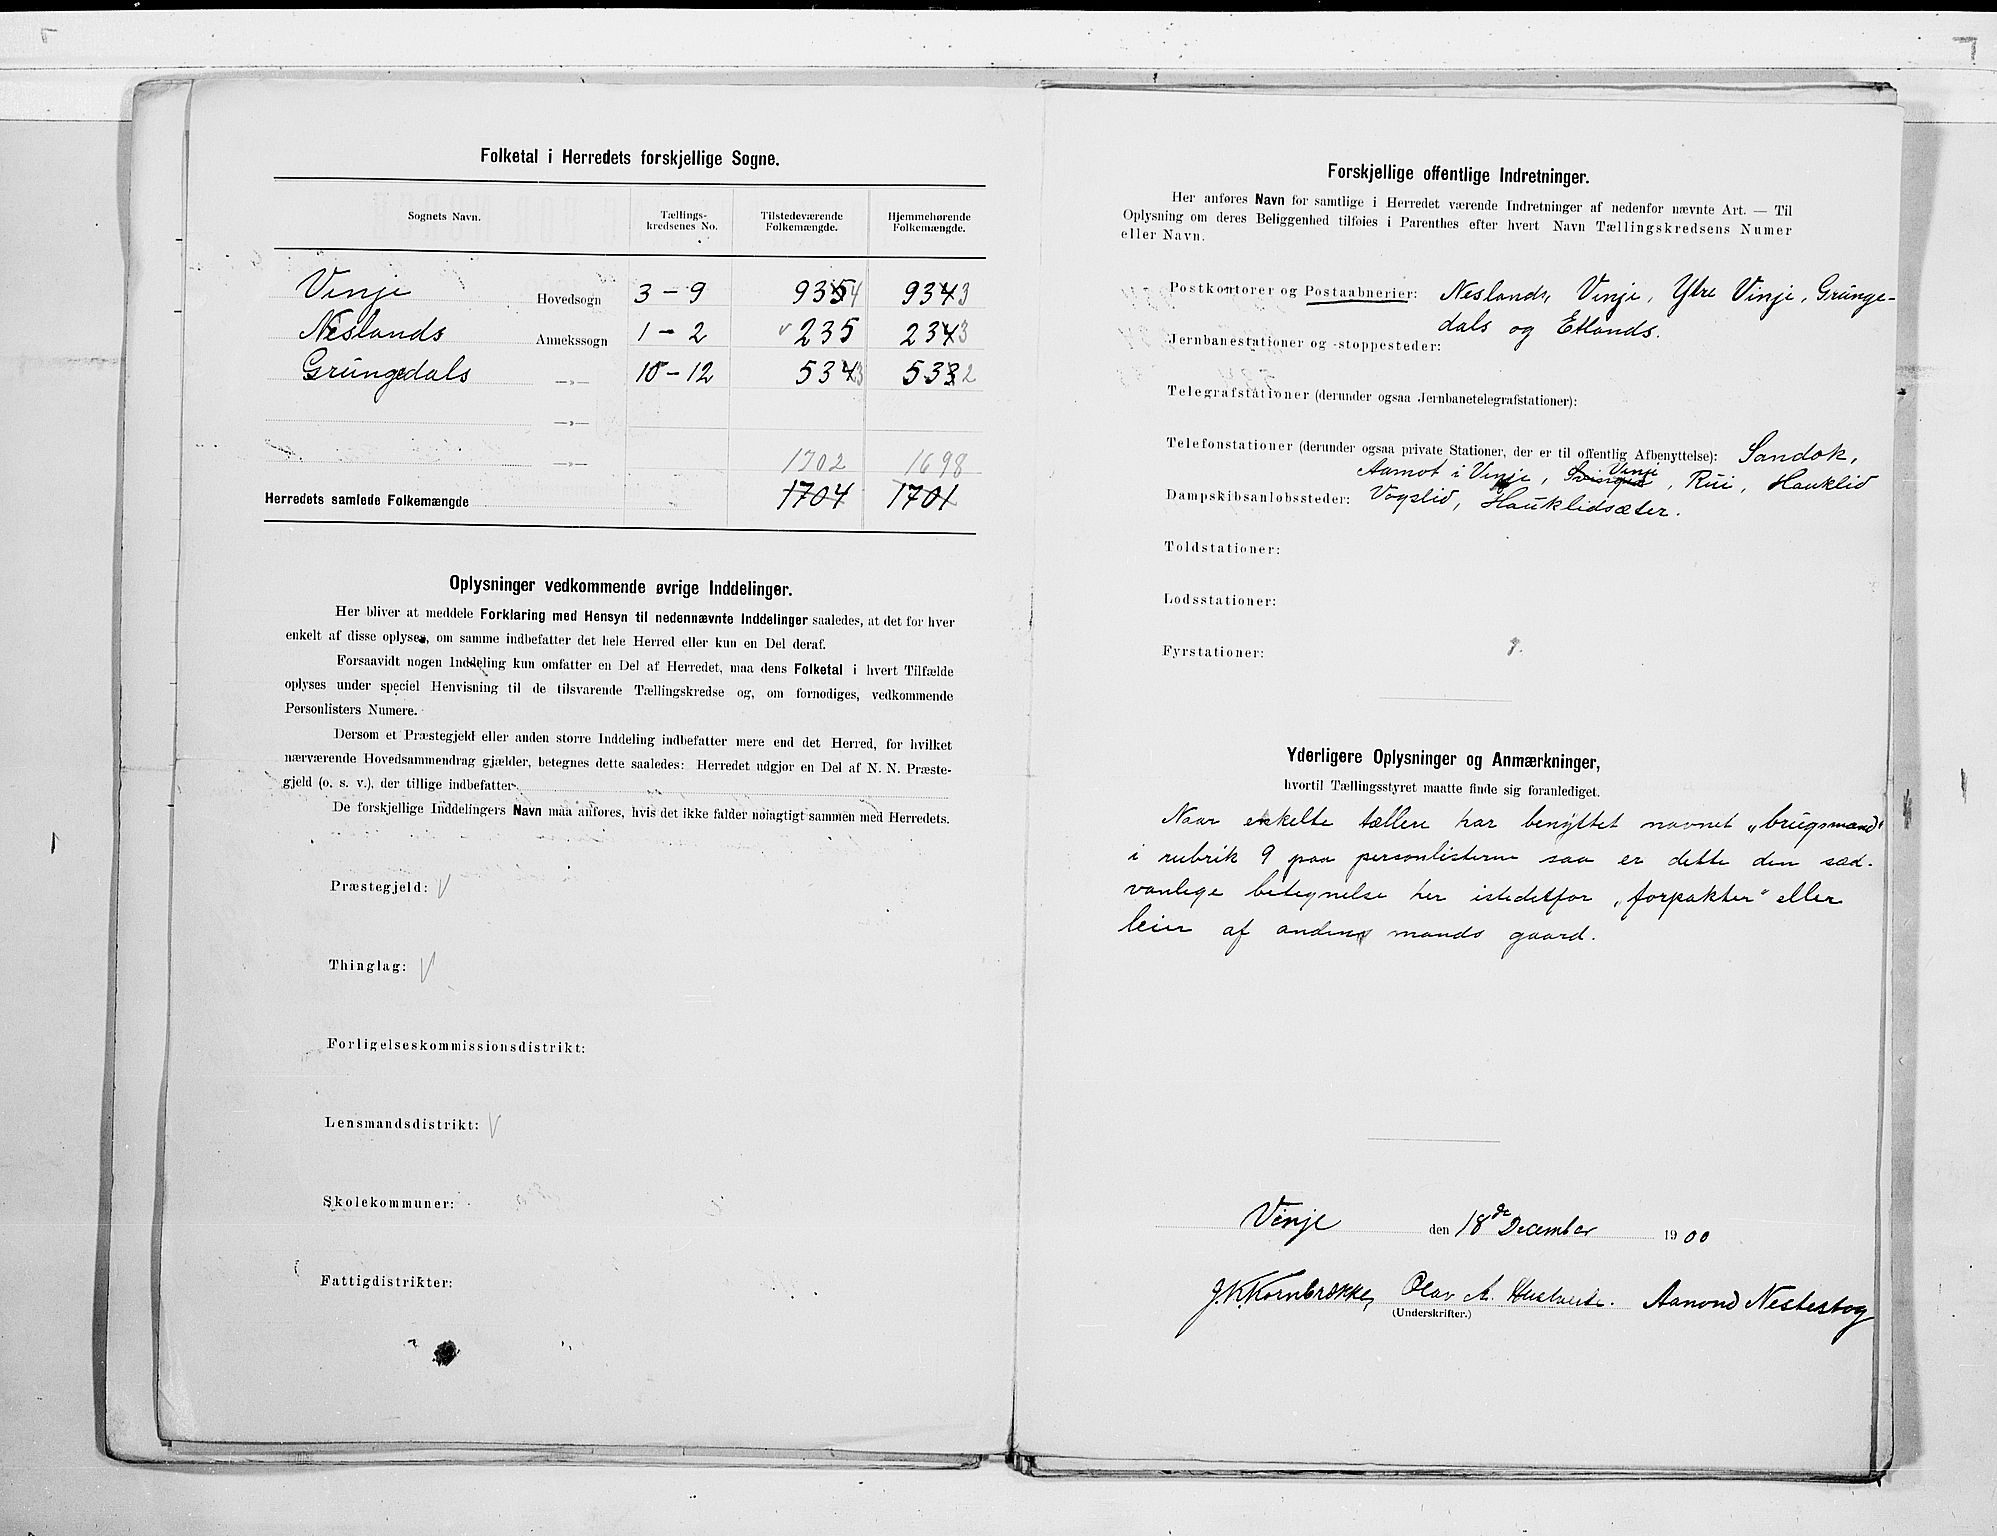 Folketal i Herredets forskjellige Sogne.
Sognets Navn. Tællings- kredsenes No. Tilstedeværende Folkemængde. Hjemmehørende Folkemængde.
Vinje Hovedsogn 3 – 9 935 4 934 3
Neslands Annekssogn 1 – 2 235 234 3
Grungedals —„— 10 – 12 534 3 533 2
—„—
—„— 1702 1698
Herredets samlede Folkemængde 1704 1701
Oplysninger vedkommende øvrige Inddelinger.
Her bliver at meddele Forklaring med Hensyn til nedennævnte Inddelinger saaledes, at det for hver
enkelt af disse oplyses, om samme indbefatter det hele Herred eller kun en Del deraf.
Forsaavidt nogen Inddeling kun omfatter en Del af Herredet, maa dens Folketal i hvert Tilfælde
oplyses under speciel Henvisning til de tilsvarende Tællingskredse og, om fornødiges, vedkommende
Personlisters Numere.
Dersom et Præstegjeld eller anden større Inddeling indbefatter mere end det Herred, for hvilket
nærværende Hovedsammendrag gjælder, betegnes dette saaledes: Herredet udgjør en Del af N. N. Præste-
gjeld (o. s. v.), der tillige indbefatter
De forskjellige Inddelingers Navn maa anføres, hvis det ikke falder nøiagtigt sammen med Herredets.
Præstegjeld: V
Thinglag: V
Forligelseskommissionsdistrikt:
Lensmandsdistrikt: V
Skolekommuner:
Fattigdistrikter:
Forskjellige offentlige Indretninger.
Her anføres Navn for samtlige i Herredet værende Indretninger af nedenfor nævnte Art. — Til
Oplysning om deres Beliggenhed tilføies i Parenthes efter hvert Navn Tællingskredsens Numer
eller Navn.
Postkontorer og Postaabnerier: Neslands, Vinje, Ytre Vinje, Grunge-
dals og Edlands.
Jernbanestationer og -stoppesteder:
Telegrafstationer (derunder ogsaa Jernbanetelegrafstationer):
Telefonstationer (derunder ogsaa private Stationer, der er til offentlig Afbenyttelse): Sandok,
Aamot i Vinje, Vinje, Rui, Hauklid
Dampskibsanløbssteder: Vogslid, Hauklidsæter.
Toldstationer:
Lodsstationer:
Fyrstationer:
Yderligere Oplysninger og Anmærkninger,
hvortil Tællingsstyret maatte finde sig foranlediget.
Naar enkelte tællere har benyttet navnet „brugsmand“
i rubrik 9 paa personlisterne saa er dette den sæd-
vanlege betegnelse her istedetfor „forpakter“ eller
leier af anden mands gaard.
Vinje den 18de December 1900
J. K. Kornbrække, Olav A. Hustveit. Aanond Nestestog
(Underskrifter.)